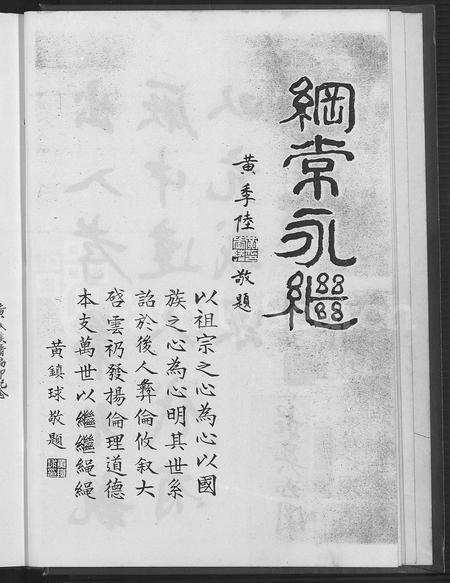 綱常永繼
黃季陸
敬題
以祖宗之心為心以國
族之心為心明其世系
詒於後人彝倫攸敘大
啓雲礽發揚倫理道德
本支萬世以繼繼繩繩
黃鎮球敬題